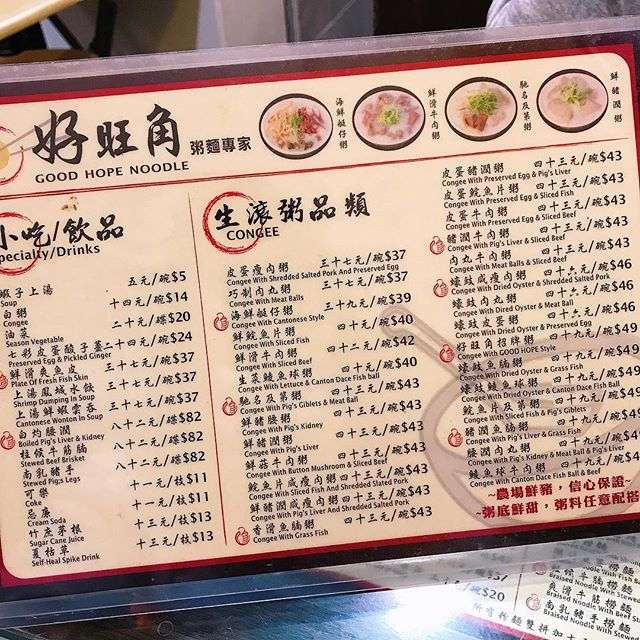 好旺角 粥麵專家
GOOD HOPE NOODLE
海鮮艇仔粥
鮮滑牛肉粥
馳名及第粥
鮮豬潤粥
小吃/飲品
Specialty/Drinks
蝦子上湯 五元/碗$5
Soup
白粥 十四元/碗$14
Congee
油菜 二十元/碟$20
Season Vegetable
七彩皮蛋酸子薑 二十四元/碟$24
Preserved Egg & Pickled Ginger
鮮滑爽魚皮 三十七元/碗$37
Plate Of Fresh Fish Skin
上湯鳳城水餃 三十七元/碗$37
Shrimp Dumping In Soup
上湯鮮蝦雲吞 三十七元/碗$37
Cantonese Wonton In Soup
白灼腰潤 八十二元/碟$82
Boiled Pig's Liver & Kidney
柱侯牛筋腩 八十二元/碟$82
Stewed Beef Brisket
南乳豬手 八十二元/碟$82
Stewed Pig;s Legs
可樂 十一元/枝$11
Coke
忌廉 十一元/枝$11
Cream Soda
竹蔗茅根 十三元/枝$13
Sugar Cane Juice
夏枯草 十三元/枝$13
Self-Heal Spike Drink
生滾粥品類
CONGEE
皮蛋瘦肉粥 三十七元/碗$37
Congee With Shredded Salted Pork And Preserved Egg
巧制肉丸粥 三十七元/碗$37
Congee With Meat Balls
海鮮艇仔粥 三十九元/碗$39
Congee With Cantonese Style
鮮鯇魚片粥 四十元/碗$40
Congee With Sliced Fish
鮮滑牛肉粥 四十元/碗$40
Congee With Sliced Beef
生菜鯪魚球粥 四十二元/碗$42
Congee With Lettuce & Canton Dace Fish ball
馳名及第粥 四十二元/碗$42
Congee With Pig's Giblets & Meat Ball
鮮豬腰粥 四十三元/碗$43
Congee With Pig's Kidney
鮮豬潤粥 四十三元/碗$43
Congee With Pig's Liver
鮮菇牛肉粥 四十三元/碗$43
Congee With Button Mushroom & Sliced Beef
鯇魚片咸瘦肉粥 四十三元/碗$43
Congee With Sliced Fish And Shredded Slated Pork
鮮豬潤咸瘦肉粥 四十三元/碗$43
Congee With Pig's Liver And Shredded Salted Pork
香滑魚腩粥 四十三元/碗$43
Congee With Grass Fish
皮蛋豬潤粥 四十三元/碗$43
Congee With Preserved Egg & Pig's Liver
皮蛋鯇魚片粥 四十三元/碗$43
Congee With Preserved Egg & Sliced Fish
皮蛋牛肉粥 四十三元/碗$43
Congee With Preserved Egg & Sliced Beef
豬潤牛肉粥 四十三元/碗$43
Congee With Pig's Liver & Sliced Beef
肉丸牛肉粥 四十三元/碗$43
Congee With Meat Balls & Sliced Beef
蠔豉咸瘦肉粥 四十六元/碗$46
Congee With Dried Oyster & Shredded Salted Pork
蠔豉肉丸粥 四十六元/碗$46
Congee With Dried Oyster & Meat Ball
蠔豉皮蛋粥 四十六元/碗$46
Congee With Dried Oyster & Preserved Egg
好旺角招牌粥 四十九元/碗$49
Congee With GOOD HOPE Style
蠔豉魚腩粥 四十九元/碗$49
Congee With Dried Oyster & Grass Fish
蠔豉鯪魚球粥 四十九元/碗$49
Congee With Dried Oyster & Canton Dace Fish Ball
鯇魚片及第粥 四十九元/碗$49
Congee With Sliced Fish & Pig's Giblets
豬潤魚腩粥 四十九元/碗$49
Congee With Pig's Liver & Grass Fish
腰潤肉丸粥 四十九元/碗$49
Congee With Pig's Kidney & Meat Ball & Pig's Liver
鯪魚球牛肉粥 四十九元/碗$49
Congee With Canton Dace Fish Ball & Beef
~農場鮮豬，信心保證~
~粥底鮮甜，粥料任意配搭
$37
$20
南乳豬手撈麵
Braised Noodle With